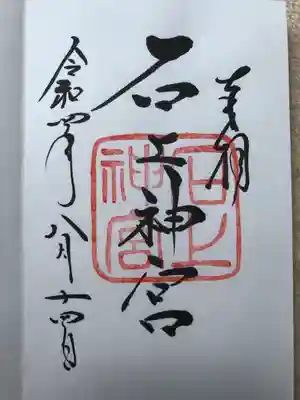 奉拝
石上神宮
令和四年八月十四日
石上神宮